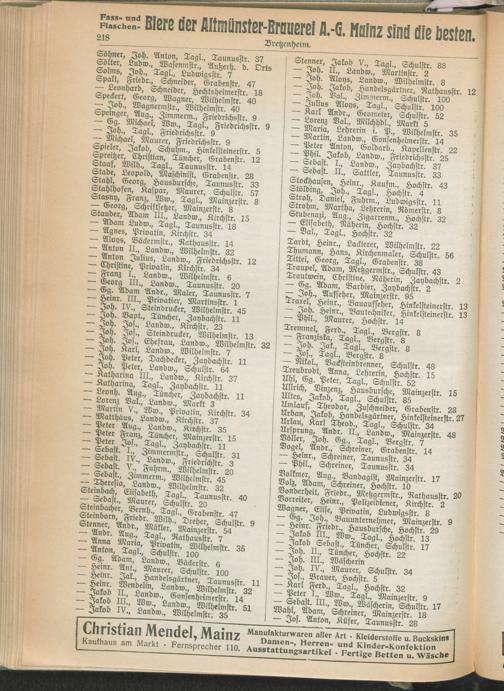 Fass- und Flaschen- Biere der Altmünster-Brauerei A.-G. Mainz sind die besten.
218
Bretzenheim.
Söhner, Joh. Anton, Tagl., Taunusstr. 37
Sölter, Ludw., Wasenmstr., Außerh. d. Orts
Solms, Joh., Tagl., Ludwigsstr. 7
Spatz, Friedr., Schneider, Grabenstr. 47
— Leonhard, Schneider, Hechtsheimerstr. 18
Speckert, Georg, Wagner, Wilhelmstr. 40
— Joh., Wagnermstr., Wilhelmstr. 40
Speinger, Aug., Zimmerm., Friedrichstr. 9
— Gg. Michael, Ww., Tagl., Friedrichstr. 9
— Joh., Tagl., Friedrichstr. 9
— Michael, Maurer, Friedrichstr. 9
Spieler, Jakob, Schuhm., Hinkelsteinerstr. 5
Spreiher, Christian, Tüncher, Grabenstr. 12
Staaf, Wilh., Tagl., Taunusstr. 14
Stade, Leopold, Maschinist, Grabenstr. 28
Stahl, Georg, Hausbursche, Taunusstr. 33
Stahlhofen, Kaspar, Maurer, Schulstr. 57
Stasny, Franz, Ww., Tagl., Mainzerstr. 8
— Georg, Schriftsetzer, Mainzerstr. 8
Stauder, Adam III., Landw., Kirchstr. 15
— Adam Ludw., Tagl., Taunusstr. 18
— Agnes, Privatin, Kirchstr. 34
— Aloys, Bäckermstr., Rathausstr. 14
— Anton II., Landw., Wilhelmstr. 32
— Anton Julius, Landw., Friedrichstr. 12
— Christine, Privatin, Kirchstr. 34
— Franz I., Landw., Wilhelmstr. 6
— Georg III., Landw., Taunusstr. 20
— Gg. Adam Andr., Maler, Taunusstr. 7
— Heinr. III., Privatier, Martinstr. 1
— Joh. IV., Steindrucker, Wilhelmstr. 45
— Joh. Bapt., Tüncher, Zaybachstr. 11
— Joh. Jos., Landw., Kirchstr. 23
— Joh. Jos., Steindrucker, Wilhelmstr. 13
— Joh. Jos., Ehefrau, Landw., Wilhelmstr. 32
— Joh. Karl, Landw., Wilhelmstr. 7
— Joh. Peter, Dachdecker, Zaybachstr. 11
— Joh. Peter, Landw., Schulstr. 64
— Katharina III., Landw., Kirchstr. 37
— Katharina, Tagl., Zaybachstr. 11
— Leonh. Aug., Tüncher, Zaybachstr. 11
— Lorenz Bal., Landw., Markt 3
— Martin V., Ww., Privatin, Kirchstr. 34
— Matthäus, Landw., Kirchstr. 37
— Peter Aug., Landw., Kirchstr. 35
— Peter Franz, Tüncher, Mainzerstr. 15
— Peter Jos., Tagl., Zaybachstr. 11
— Sebast. I., Zimmermstr., Schulstr. 31
— Sebast. IV., Landw., Friedrichstr. 3
— Sebast. V., Fuhrm., Wilhelmstr. 20
— Sebast., Zimmerm., Wilhelmstr. 45
— Theresia, Landw., Wilhelmstr. 32
Steinbach, Elisabeth, Tagl., Taunusstr. 40
— Sebast., Maurer, Schulstr. 20
Steinbacher, Bernh., Tagl., Grabenstr. 47
Steinborn, Friedr. Wilh., Dreher, Schulstr. 9
Stenner, Andr., Müller, Mainzerstr. 54
— Andr. Aug., Tagl., Rathausstr. 7
— Anna Maria, Privatin, Wilhelmstr. 35
— Anton, Tagl., Schulstr. 100
— Gg. Adam, Landw., Bäckerstr. 6
— Heinr. Ant., Maurer, Schulstr. 100
— Heinr. Jak., Handelsgärtner, Taunusstr. 11
— Heinr. Wendelin, Landw., Wilhelmstr. 32
— Jakob II., Landw., Gonsenheimerstr. 14
— Jakob III., Ww., Landw., Wilhelmstr. 51
— Jakob IV., Landw., Wilhelmstr. 35
Stenner, Jakob V., Tagl., Schulstr. 88
— Joh. II., Landw., Martinstr. 2
— Joh. Aloys, Landw., Wilhelmstr. 8
— Joh. Jakob, Handelsgärtner, Rathausstr. 12
— Joh. Bal., Zimmerm., Schulstr. 100
— Julius Aloys, Tagl., Schulstr. 100
— Karl Andr., Geometer, Schulstr. 52
— Lorenz Bal., Milchhdl., Markt 5
— Maria, Lehrerin i. P., Wilhelmstr. 35
— Martin, Landw., Gonsenheimerstr. 14
— Peter Anton, Goldarb., Kapellenstr. 22
— Phil. Jakob, Landw., Friedrichstr. 25
— Sebast., Landw., Zaybachstr. 37
— Sebast. II., Sattler, Taunusstr. 33
Stockhausen, Heinr., Kaufm., Hochstr. 43
Stölding, Joh., Tagl., Hochstr. 4
Stroh, Daniel, Fuhrm., Ludwigsstr. 11
Strohm, Martha, Lehrerin, Römerstr. 8
Stubenazi, Aug., Zigarrenm., Hochstr. 32
— Elisabeth, Näherin, Hochstr. 32
— Val., Tagl., Hochstr. 32
Tardt, Heinr., Lackierer, Wilhelmstr. 22
Thumann, Hans, Kirchenmaler, Schulstr. 56
Tittel, Georg, Tagl., Grabenstr. 38
Traupel, Adam, Metzgermstr., Schulstr. 43
Trautwein, Christine, Näherin, Zaybachstr. 2
— Gg. Adam, Barbier, Zaybachstr. 2
— Joh., Aufseher, Mainzerstr. 95
Traxel, Heinr., Bauaufseher, Hinkelsteinerstr. 13
— Joh. Heinr., Bautechniker, Hinkelsteinerstr. 13
— Phil., Maurer, Hochstr. 14
Tremmel, Ferd., Tagl., Bergstr. 8
— Franziska, Tagl., Bergstr. 8
— Joh. Jak., Tagl., Bergstr. 8
— Jos., Tagl., Bergstr. 8
— Nikol., Backsteinbrenner, Schulstr. 48
Treubrodt, Anna, Lehrerin, Hochstr. 15
Uhl, Gg. Peter, Tagl., Schulstr. 52
Ullrich, Vinzenz, Hausbursche, Mainzerstr. 15
Ultes, Jakob, Tagl., Schulstr. 85
Umlauf, Theodor, Zuschneider, Grabenstr. 28
Urban, Jakob, Handelsgärtner, Hinkelsteinerstr. 27
Urlau, Karl Theod., Tagl., Schulstr. 34
Ursprung, Andr. II., Landw., Mainzerstr. 48
Völler, Joh. Gg., Tagl., Bergstr. 7
Vogel, Andr., Schreiner, Grabenstr. 14
— Heinr., Schreiner, Taunusstr. 34
— Phil., Schreiner, Taunusstr. 34
Volkmer, Aug., Bandagist, Mainzerstr. 17
Volz, Adam, Schreiner, Hochstr. 10
Vonderbeit, Friedr., Metzgermstr., Rathausstr. 20
Vorreiter, Heinr., Polizeidiener, Kirchstr. 2
Wagner, Elise, Privatin, Ludwigstr. 8
— Gg. Joh., Bauunternehmer, Mainzerstr. 9
— Heinr. Friedr., Hausbursche, Hochstr. 29
— Jakob III., Ww., Tagl., Hochstr. 13
— Jakob Sebast., Tüncher, Schulstr. 17
— Joh. II., Tüncher, Hochstr. 22
— Joh. III., Wäscherin
— Joh. IV., Maurer, Schulstr. 34
— Jos., Brauer, Hochstr. 5
— Karl Ferd., Tagl., Hochstr. 32
— Peter I., Ww., Tagl., Mainzerstr. 9
— Sebast. III., Ww., Wäscherin, Schulstr. 17
Wahl, Adam, Schreiner, Mainzerstr. 18
— Jos. Anton, Küfer, Taunusstr. 28
Christian Mendel, Mainz
Kaufhaus am Markt · Fernsprecher 110.
Manufakturwaren aller Art · Kleiderstoffe u. Buckskins
Damen-, Herren- und Kinder-Konfektion
Ausstattungsartikel · Fertige Betten u. Wäsche